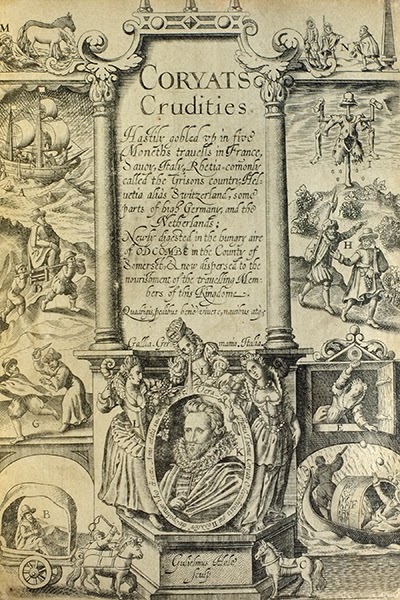 M
N
CORYATS
Crudities
Hastily gobled vp in five
Moneths travells in France,
Savoy, Italy, Rhetia comonly
called the Grisons country, Hel-
vetia aliàs Switzerland, some
parts of high Germany, and the
Netherlands;
Newly digested in the hungry aire
of ODCOMBE in the County of
Somerset, & now dispersed to the
nourishment of the travelling Mem-
bers of this Kingdome.
Quadrigis, pedibus bene vivere, navibus atq;
Gallia. Ger mania. Italia.
D
H
G
E
B
F
K
Gulielmus Hole
sculp